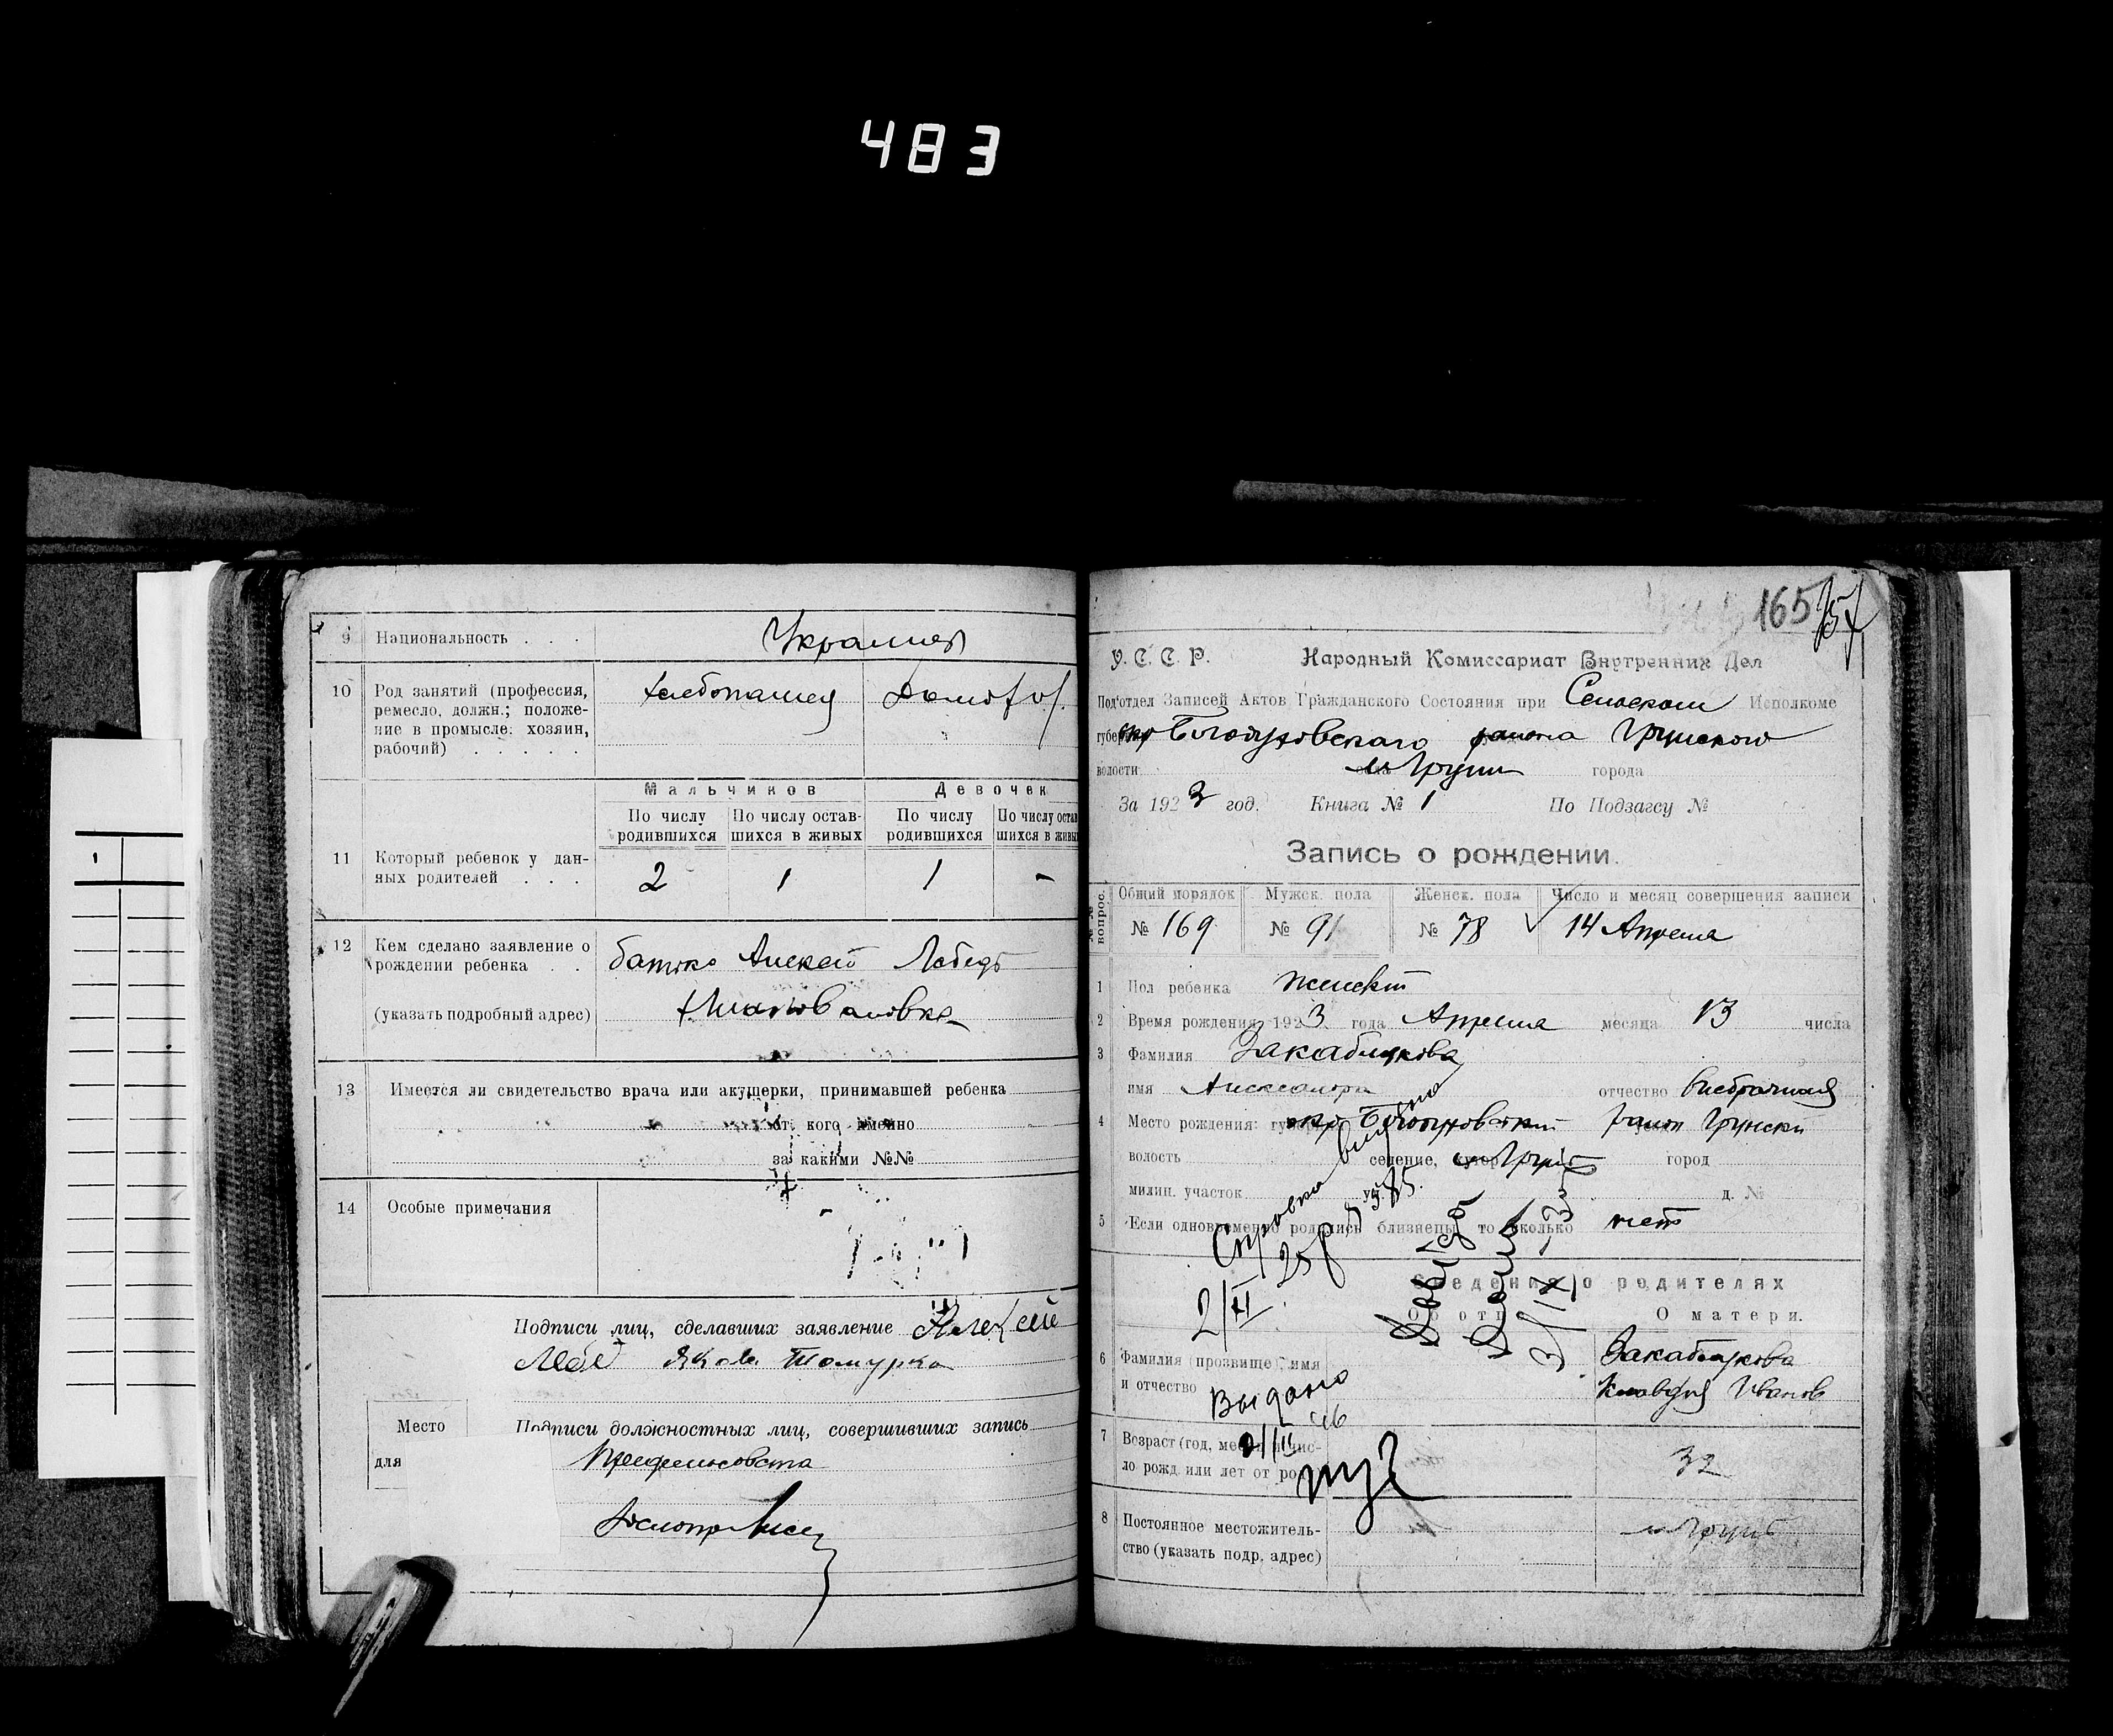 483
9 Национальность . . . Украинец
10 Род занятий (профессия, ремесло, должн.; положение в промысле: хозяин, рабочий) . . . . .
Хлебопашец
Мальчиков Девочек
По числу родившихся По числу оставшихся в живых По числу родившихся По числу остав шихся в живы
11 Который ребенок у данных родителей . . . 2 1 1 -
12 Кем сделано заявление о рождении ребенка . .
батько Алексей Лебедь
(указать подробный адрес)
13 Имеется ли свидетельство врача или акушерки, принимавшей ребенка
от кого именно
за какими №№
14 Особые примечания
Подписи лиц, сделавших заявление Алексей
Леб Яков
Место
для
Подписи должностных лиц, совершивших запись
165
У. С. С. Р. Народный Комиссариат Внутренних Дел
Под'отдел Записей Актов Гражданского Состояния при Сельском Исполкоме
губер окр Богодуховского района Грунского
волости м Грунь города
За 1923 год. Книга № 1 По Подзагсу №
Запись о рождении.
№№ вопрос. Общий порядок Мужск. пола Женск. пола Число и месяц совершения записи
№ 169 № 91 № 78 14 Апреля
1 Пол ребенка женск
2 Время рождения 1923 года Апреля месяца 13 числа
3 Фамилия Закаблукова
имя Александра отчество внебрачная
4 Место рождения: окр Богодуховский район Грунски
волость селение, хутор м Грунь город
милиц. участок ул. д. №
5 Если одновременно родились близнецы, то сколько нет
Справка выдана
2/XI
Сведения о родителях
Об отце О матери.
6 Фамилия (прозвище), имя и отчество
Закаблукова
Клавдия Иванов
Выдано
46
7 Возраст (год, месяц и число рожд. или лет от ро
32
8 Постоянное местожительство (указать подр. адрес)
м Грунь